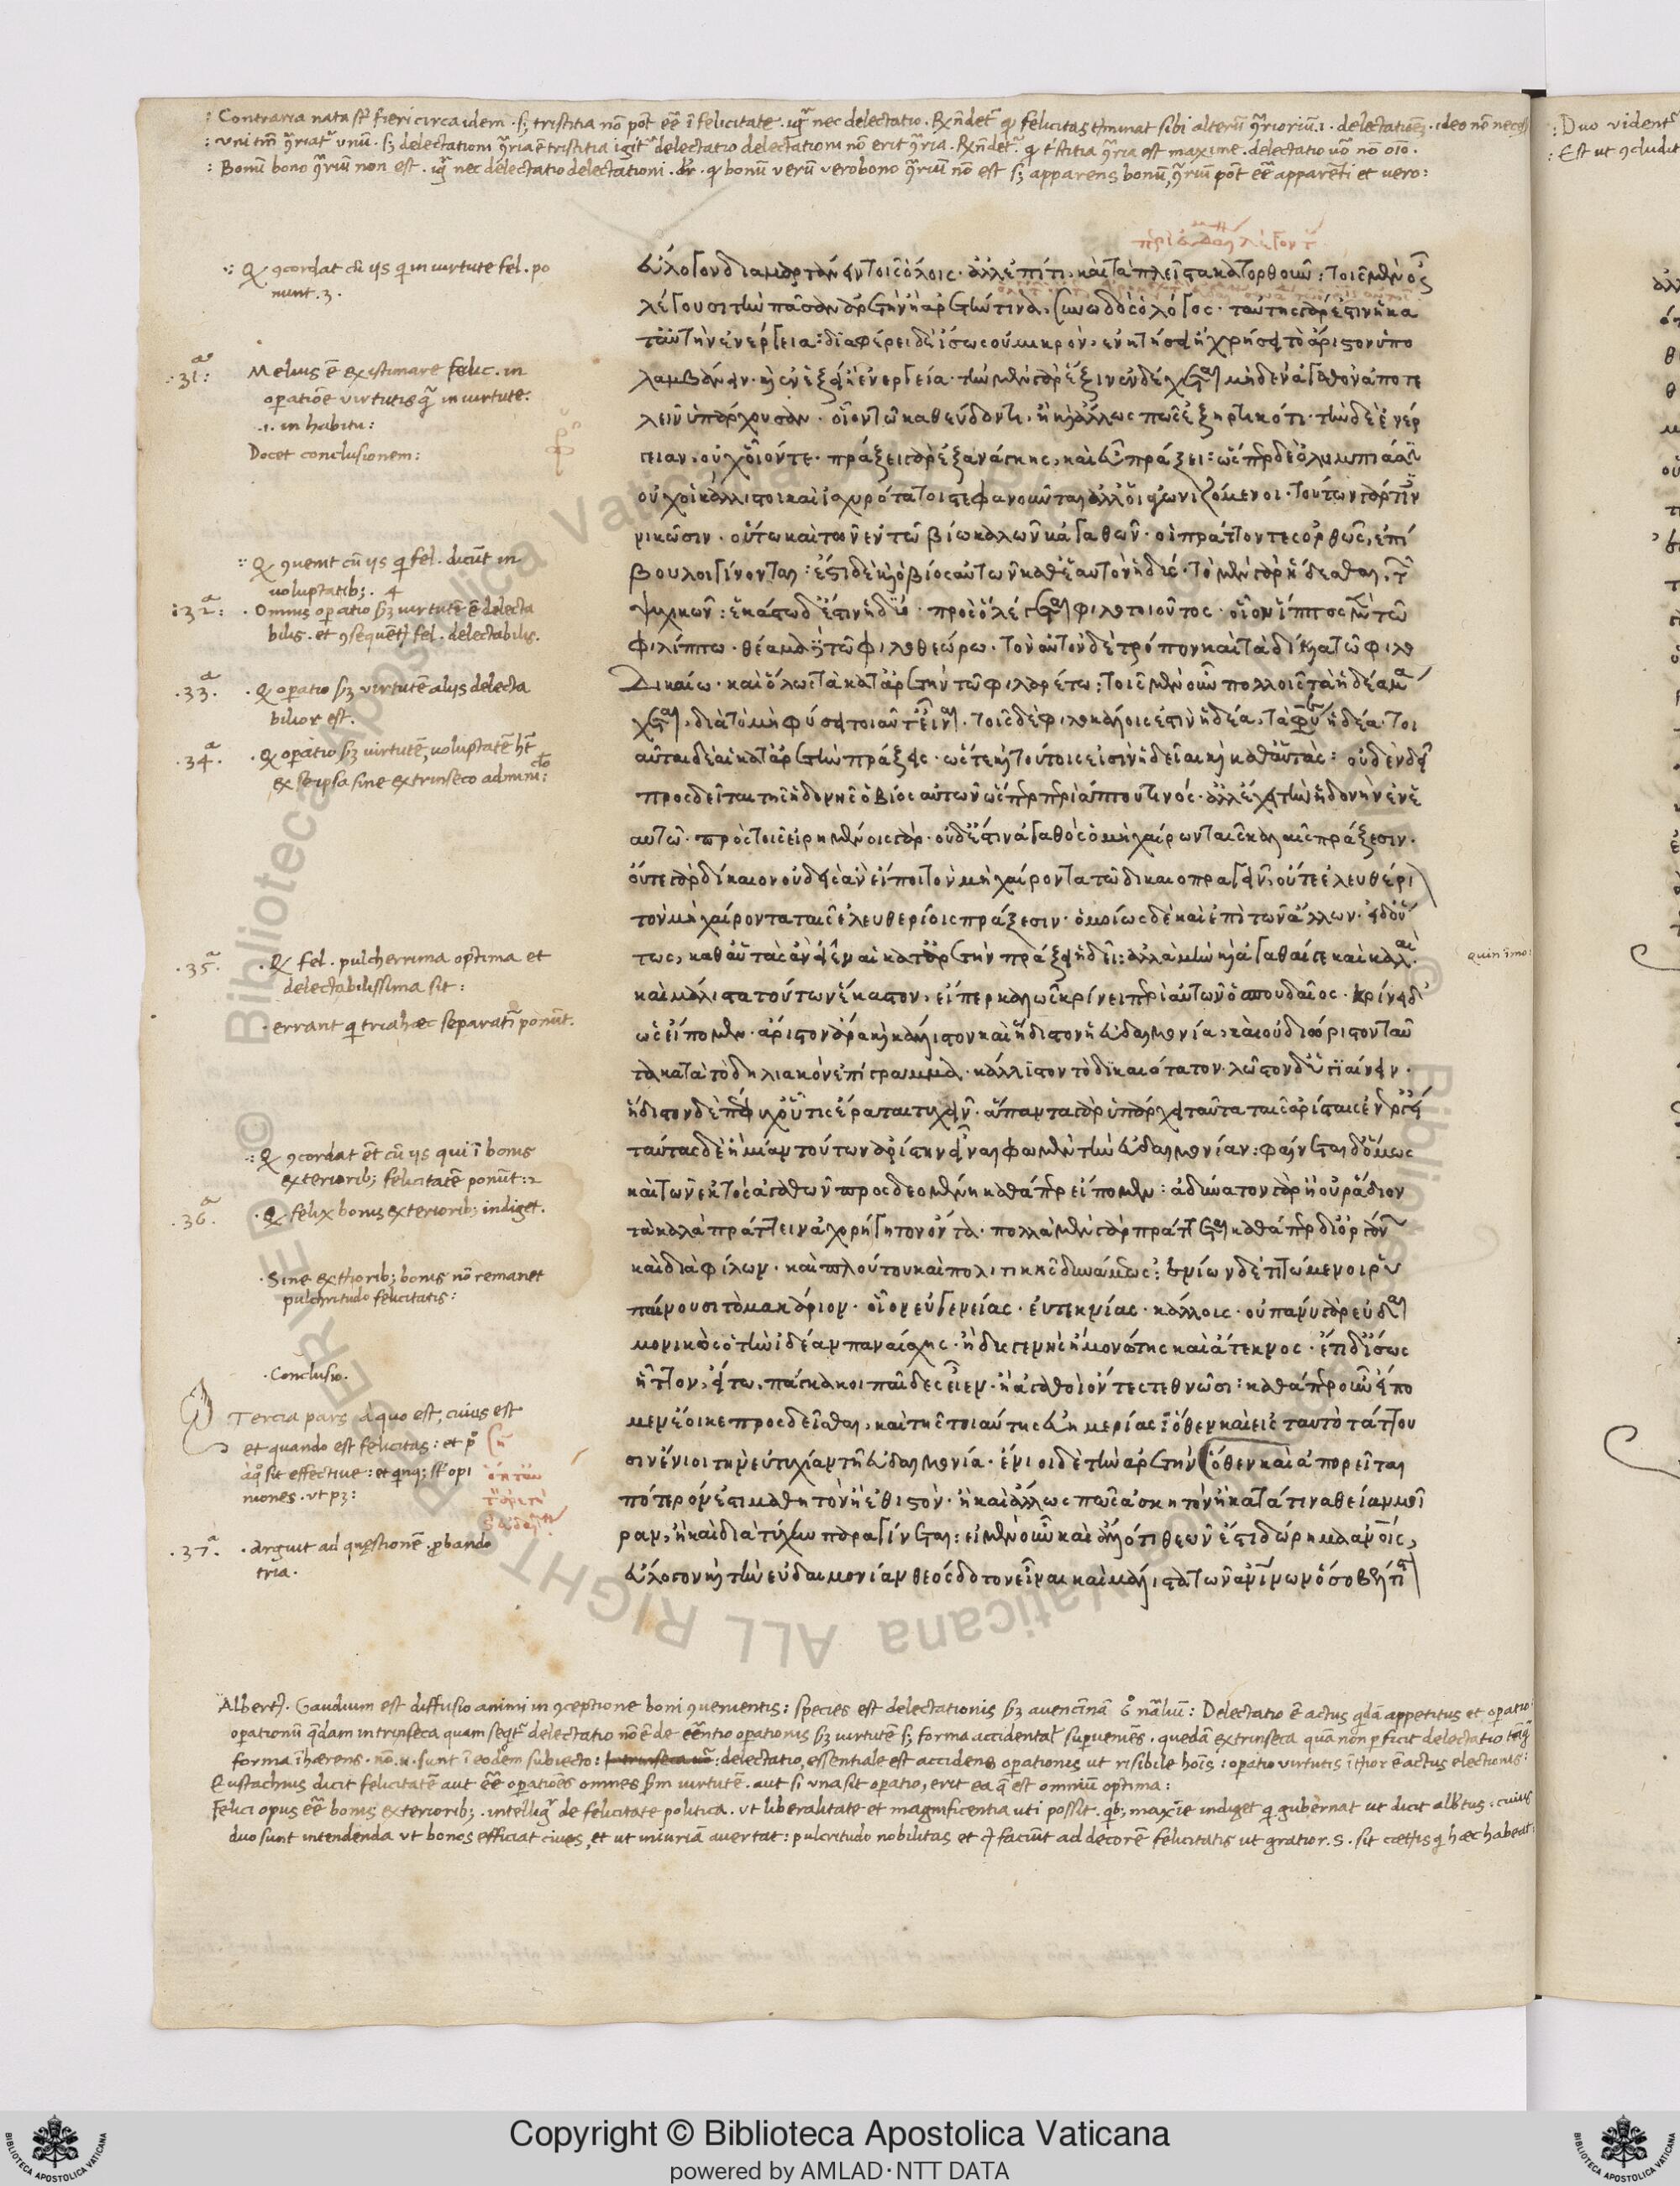 : Contraria nata st fieri circa idem . s; tristitia nō pōt eē ī felicitate . igr nec delectatio . Rñdet q felicitas tminat sibi alterū 9rioriū .i. delectatiōē . ideo nō
: Vni tm̄ 9riat unū . s; delectationi 9ria ē tristitia igit delectatio delectationi nō erit 9ria . Rñdet q tstitia 9ria est maxime . delectatio uō nō oīo .
: Bonū bono 9riū non est . igr nec delectatio delectationi . dr . q bonū verū vero bono 9riū nō est s; apparens bonū, 9riū pōt eē apparēti et uero :
: Duo vident
: Est ut 9cludit
Q 9cordat cū ijs q in uirtute fel . po
nunt . 3 .
.31. Melius ē existimare felic . in
opatiōe virtutis q in uirtute .
.i. in habitu :
Docet conclusionem :
Q 9uenit cū ijs q fel . dicūt in
uoluptatib; . 4
.32. . Omnis opatio s3 uirtutē ē delecta
bilis . et 9sequēt fel . delectabilis .
.33. . Q opatio s3 virtutē alijs delecta
bilior est .
.34. . Q opatio s3 virtutē, uoluptatē ht
ex seipsa sine extrinseco admini :
.35. . Q fel . pulcherrima optima et
delectabilissima sit :
. errant q tria hæc separatī ponūt .
Q 9cordat ēt cū ijs qui ī bonis
exteriorib; felicitatē ponūt : 2
.36. . Q felix bonis exteriorib; indiget .
. Sine exthorib; bonis nō remanet
pulchritudo felicitatis :
. Conclusio .
Tercia pars à quo est, cuius est
et quando est felicitas : et p
à q sit effectiue : et qnq; st opi
niones . vt p3 :
.37. . Arguit ad questionē . pbando
tria .
εὔλογον διαμαρτάνειν τοῖς ὅλοις · ἀλλ' ἕν τι, καὶ τὰ πλεῖστα κατορθοῦν : τοῖς μὲν οὖν
λέγουσι τὴν πᾶσαν ἀρετὴν ἢ ἀρετήν τινα, συνῳδός ὁ λόγος · ταύτης γάρ ἐστιν ἡ κα
τ' αὐτὴν ἐνέργεια : διαφέρει δὲ ἴσως οὐ μικρὸν, ἐν κτήσει ἢ χρήσει τὸ ἄριστον ὑπο
λαμβάνειν · καὶ ἐν ἕξει ἢ ἐνεργεία · τὴν μὲν γὰρ ἕξιν ἐνδέχεται μηδὲν ἀγαθὸν ἀποτε
λεῖν ὑπάρχουσαν · οἷον τῶ καθεύδοντι, ἢ καὶ ἄλλως πως ἐξηργηκότι · τὴν δὲ ἐνέρ
γειαν, οὐχ οἷόντε · πράξει γὰρ ἐξανάγκης, καὶ εὖ πράξει : ὥσπερ δὲ ὀλυμπιάσιν
οὐχ οἱ κάλλιστοι καὶ ἰσχυρότατοι στεφανοῦνται ἀλλ' οἱ ἀγωνιζόμενοι · τούτων γάρ τινες
νικῶσιν · οὕτω καὶ τῶν ἐν τῶ βίω καλῶν κἀγαθῶν · οἱ πράττοντες ὀρθῶς, ἐπή
βολοι γίνονται : ἔστι δὲ καὶ ὁ βίος αὐτῶν καθ' ἑαυτὸν ἡδύς · τὸ μὲν γὰρ ἥδεσθαι, τῶν
ψυχικῶν : ἑκάστω δ' ἐστὶν ἡδύ · πρὸς ὃ λέγεται φιλοτοιοῦτος · οἷον ἵππος μὲν τῶ
φιλίππω · θέαμα δὲ τῶ φιλοθεώρω · τὸν αὐτὸν δὲ τρόπον καὶ τὰ δίκαια τῶ φιλο
δικαίω · καὶ ὅλως τὰ κατ' ἀρετὴν τῶ φιλαρέτω : τοῖς μὲν οὖν πολλοῖς τὰ ἡδέα μά
χεται, διὰ τὸ μὴ φύσει τοιαῦτ' εἶναι · τοῖς δὲ φιλοκάλοις ἐστὶν ἡδέα, τὰ φύσει ἡδέα · τοι
αῦται δὲ αἱ κατ' ἀρετὴν πράξεις · ὥστε καὶ τούτοις εἰσὶν ἡδεῖαι καὶ καθ' αὑτὰς : οὐδὲν δὲ
προσδεῖται τῆς ἡδονῆς ὁ βίος αὐτῶν ὥσπερ περιάπτου τινός · ἀλλ' ἔχει τὴν ἡδονὴν ἐν ἑ
αυτῶ · πρὸς τοῖς εἰρημένοις γὰρ · οὐδ' ἐστὶν ἀγαθὸς ὁ μὴ χαίρων ταῖς καλαῖς πράξεσιν ·
οὔτε γὰρ δίκαιον οὐδεὶς ἂν εἴποι τὸν μὴ χαίροντα τῶ δικαιοπραγεῖν, οὔτε ἐλευθέρι
τὸν μὴ χαίροντα ταῖς ἐλευθερίοις πράξεσιν · ὁμοίως δὲ καὶ ἐπὶ τῶν ἄλλων · εἰ δ' οὕ
τως, καθ' αὑτὰς ἂν εἶεν αἱ κατ' ἀρετὴν πράξεις ἡδεῖαι : ἀλλὰ μὴν καὶ ἀγαθαί γε καὶ καλαὶ
καὶ μάλιστα τούτων ἕκαστον, εἴπερ καλῶς κρίνει περὶ αὐτῶν ὁ σπουδαῖος · κρίνει δ'
ὡς εἴπομεν · ἄριστον ἄρα καὶ κάλλιστον καὶ ἥδιστον ἡ εὐδαιμονία, καὶ οὐ διώρισται ταῦ
τα κατὰ τὸ δηλιακὸν ἐπίγραμμα · κάλλιστον τὸ δικαιότατον · λῷστον δ' ὑγιαίνειν ·
ἥδιστον δὲ πέφυχ' οὗ τις ἐρᾶται τυχεῖν · ἅπαντα γὰρ ὑπάρχει ταῦτα ταῖς ἀρίσταις ἐνεργείαις
ταύτας δὲ ἢ μίαν τούτων ἀρίστην εἶναι φαμὲν τὴν εὐδαιμονίαν : φαίνεται δ' ὅμως
καὶ τῶν ἐκτὸς ἀγαθῶν προσδεομένη καθάπερ εἴπομεν : ἀδύνατον γὰρ ἢ οὐ ῥάδιον
τὰ καλὰ πράττειν ἀχορήγητον ὄντα · πολλὰ μὲν γὰρ πράττεται καθάπερ δι' ὀργάνων
καὶ διὰ φίλων · καὶ πλούτου καὶ πολιτικῆς δυνάμεως : ἐνίων δὲ τητώμενοι ῥυ
παίνουσι τὸ μακάριον · οἷον εὐγενείας · εὐτεκνίας · κάλλους · οὐ πάνυ γὰρ εὐδαι
μονικὸς ὁ τὴν ἰδέαν παναίσχης · ἢ δυσγενὴς ἢ μονώτης καὶ ἄτεκνος · ἔτι δ' ἴσως
ἧττον, εἴ τω, πάγκακοι παῖδες εἶεν · ἢ ἀγαθοὶ ὄντες τεθνῶσι : καθάπερ οὖν εἴπο
μεν ἔοικε προσδεῖσθαι, καὶ τῆς τοιαύτης εὐημερίας : ὅθεν καὶ εἰς ταυτὸ τάττου
σιν ἔνιοι τὴν εὐτυχίαν τῆ εὐδαιμονία · ἔνιοι δὲ τὴν ἀρετήν ὅθεν καὶ ἀπορεῖται
πότερόν ἐστι μαθητὸν ἢ ἐθιστὸν · ἢ καὶ ἄλλως πως ἀσκητὸν ἢ κατά τινα θείαν μοῖ
ραν, ἢ καὶ διὰ τύχην παραγίνεται : εἰ μὲν οὖν καὶ ἄλλο τι θεῶν ἐστι δώρημα ἀνοις,
εὔλογον καὶ τὴν εὐδαιμονίαν θεόσδοτον εἶναι καὶ μάλιστα τῶν ἀνίνων ὅσω βέλτι
quin imo :
Albert . Gaudium est diffusio animi in 9ceptione boni 9uenientis : species est delectationis s3 auencinā 6 nāliū : Delectatio ē actus qdā appetitus et opatio
operationū qdam intrinseca quam seqt delectatio nō ē de eēntia operationis s3 uirtutē s; forma accidental supueniēs . quedā extrinseca quā non pficit delectatio
forma īhærens . nō . n . sunt ī eodem subiecto : delectatio, essentiale est accidens operationis ut risibile hoīs : opatio virtutis īthior ē actus electionis :
Eustachius dicit felicitatē aut eē operatiōēs omnes s3m uirtutē . aut si vna sit opatio, erit ea q est omniū optima :
Felici opus eē bonis exteriorib; . intelligr de felicitate politica . vt liberalitate et magnificentia uti possit . qb; maxīe indiget q gubernat ut dicit albtus . cuius
duo sunt intendenda vt bonos efficiat ciues, et ut iniuriā auertat : pulcritudo nobilitas et faciūt ad decorē felicitatis ut gratior . s . sit cættis q hæc habeat :
Copyright © Biblioteca Apostolica Vaticana
powered by AMLAD·NTT DATA